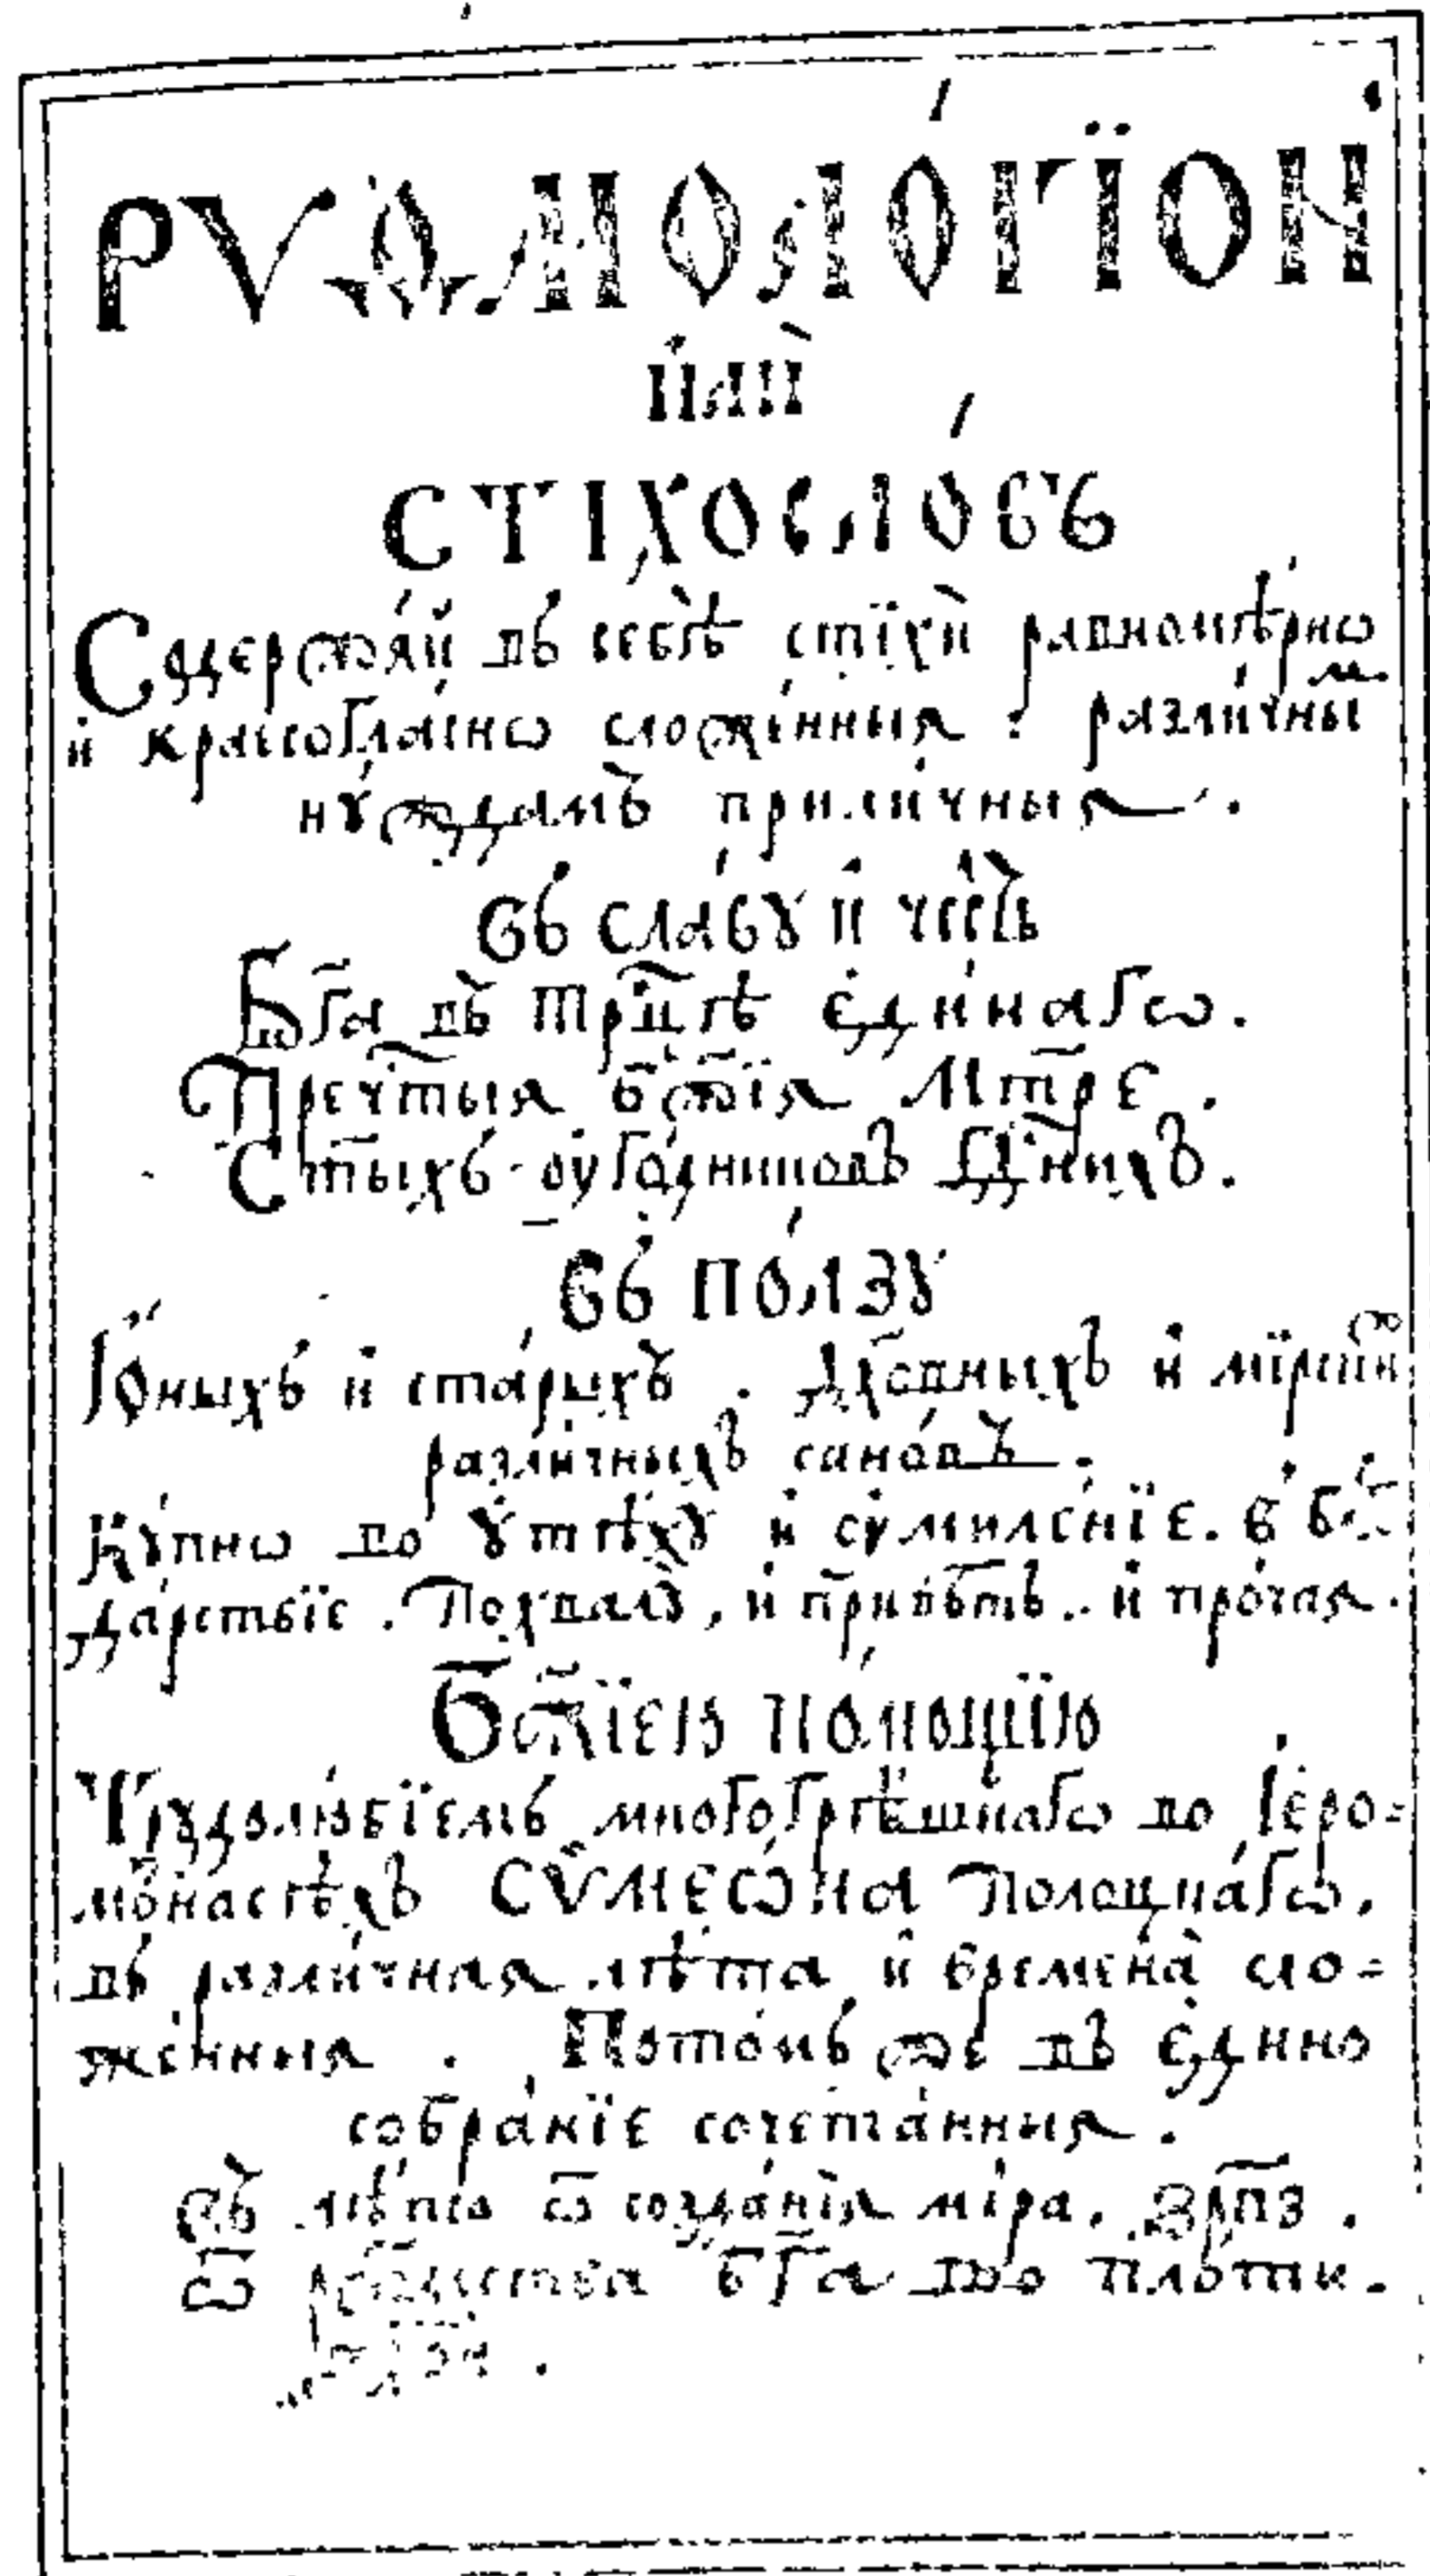 РУѲМОЛО́ГЇОН
И҆ЛЍ
СТІХОСЛО́ВЪ
Содержа́й въ себѣ̀ стїхѝ равномѣ́рнѡ
и҆ краесогла́снѡ сложе́нныя : разли́чны
нꙋ́ждамъ прили́чныя .
Въ сла́вꙋ и҆ че́сть
Бг҃а въ Трⷪ҇цѣ є҆ди́нагѡ .
Пречⷭ҇тыя Бж҃їя Мт҃ре .
Ст҃ыхъ оуго́дникѡвъ Гдⷭ҇нихъ .
Въ по́лзꙋ
Ю҆́ныхъ и҆ ста́рыхъ . Дх҃о́вныхъ и҆ мїрски
разли́чныхъ сано́въ .
Кꙋ́пнѡ во ꙋ҆тѣ́хꙋ и҆ оумиле́нїе . в
да́рствїе . Похвалꙋ̀ , и҆ привѣ́тъ . и҆ про́чая .
Бж҃їею по́мощїю
Трꙋдолю́бїемъ многогрѣ́шнагѡ во І҆еро=
мона́сѣхъ СѴМЕѠ́НА Полоцка́гѡ ,
въ разли́чная лѣ́та и҆ времена̀ сло=
же́нныя . Пото́мъ же въ є҆ди́но
собра́нїе сочета́нныя .
Въ лѣ́то ѿ созда́нїя мі́ра . ҂зрпз .
Ѿ рождества̀ Бг҃а по пло́ти .